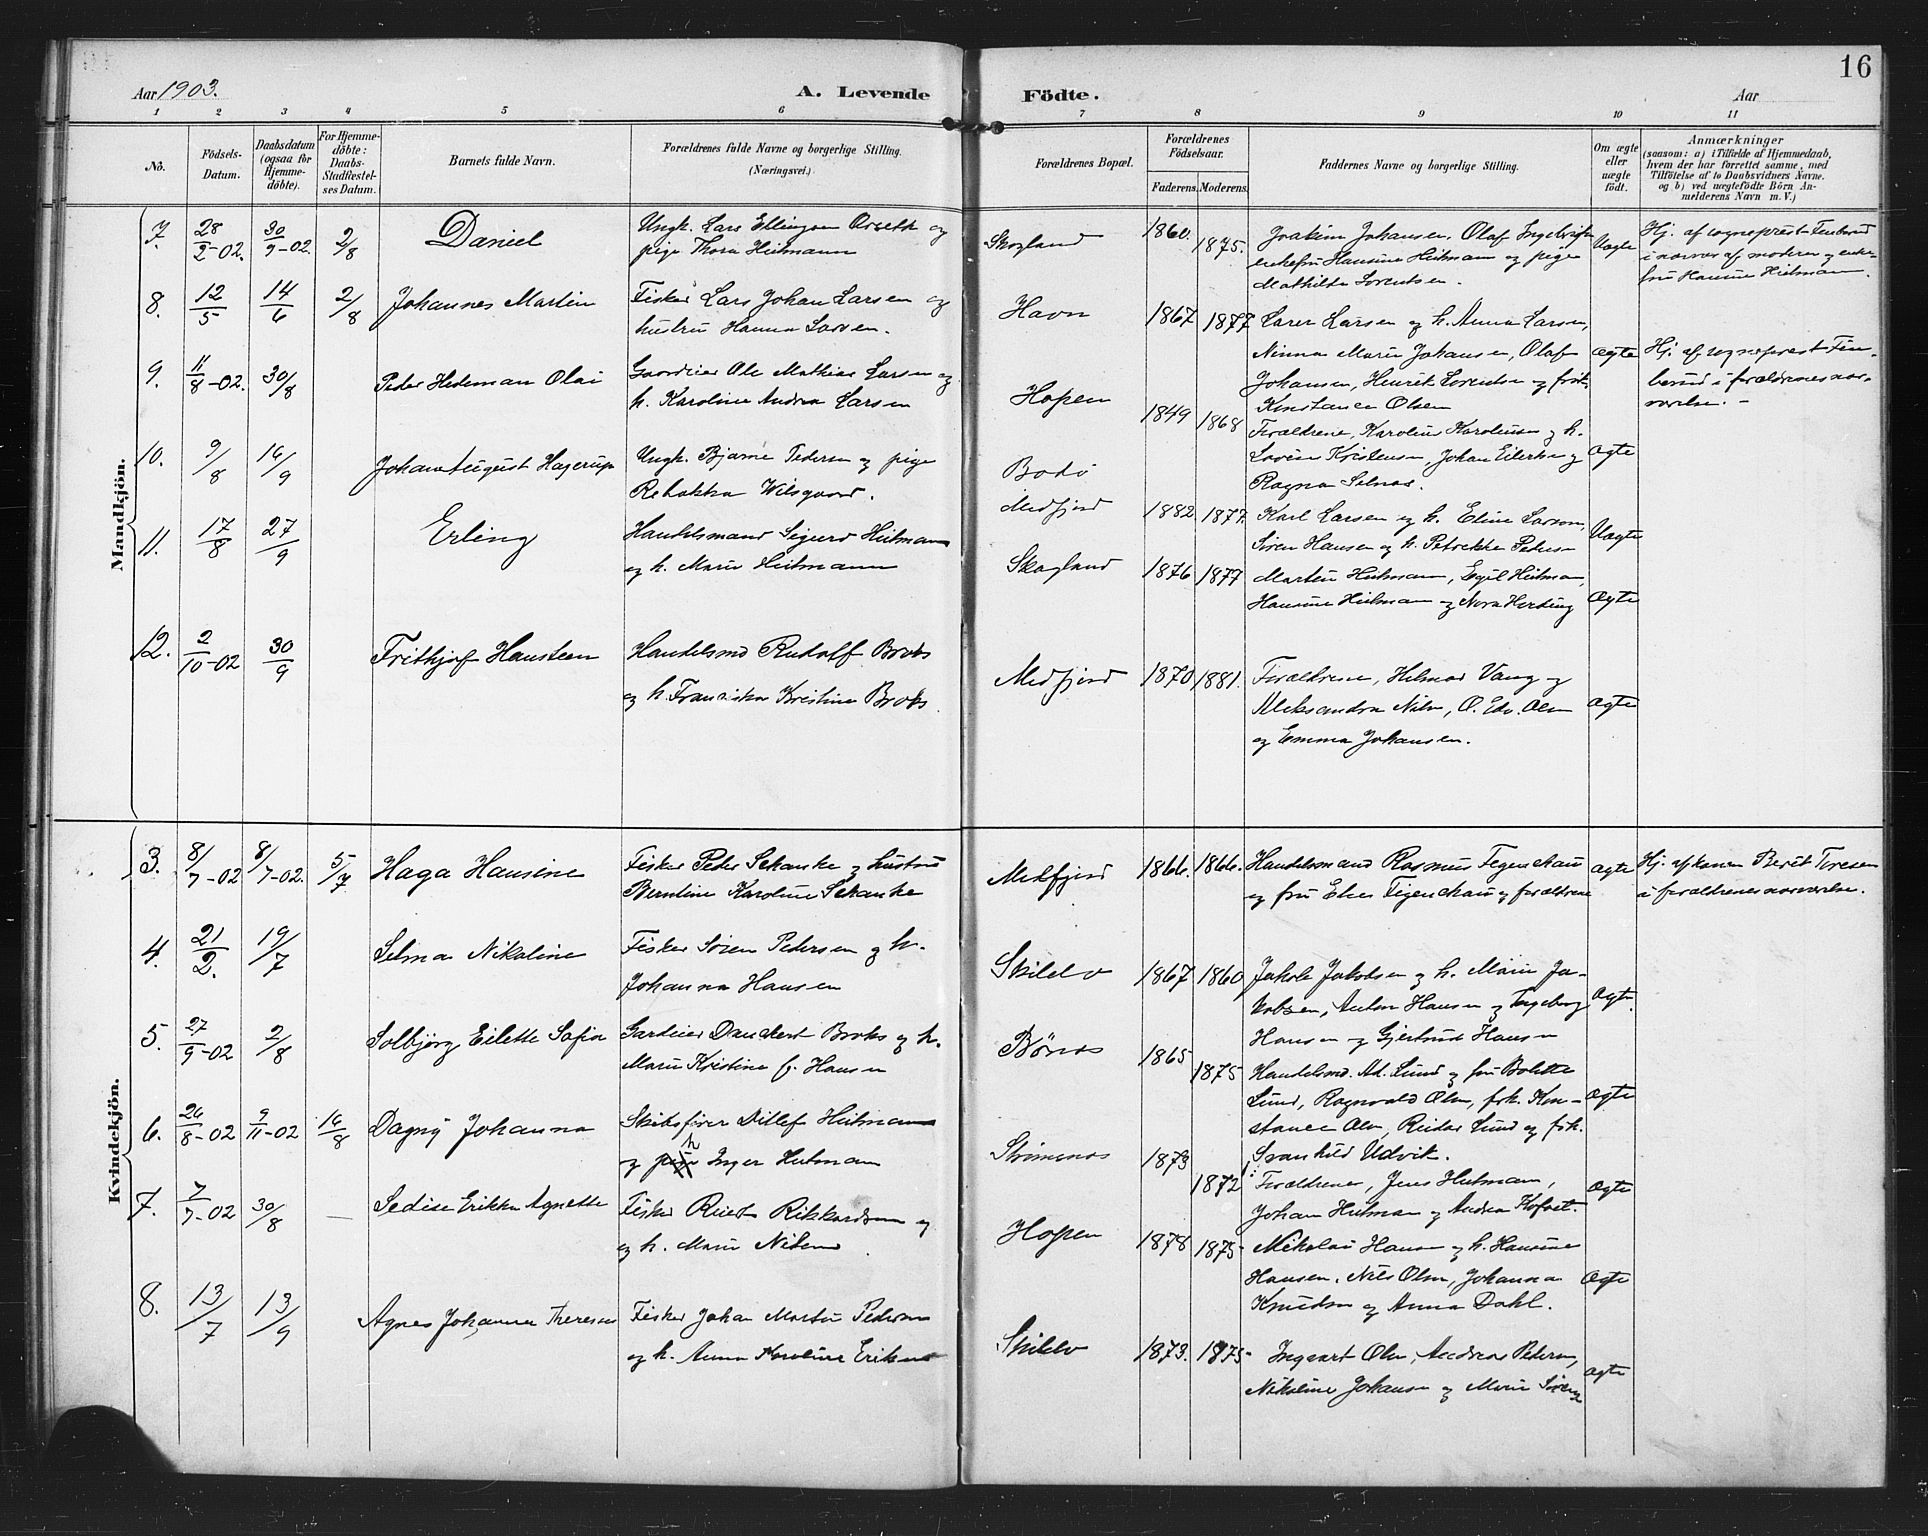 16
Aar 1903.
A. Levende
Födte.
Aar
1 2 3 4 5 6 7 8 9 10 11
No.
Födsels-
Datum.
Daabsdatum
(ogsaa for
Hjemme-
döbte).
For Hjemme-
döbte:
Daabs-
Stadfæstel-
ses Datum.
Barnets fulde Navn.
Forældrenes fulde Navne og borgerlige Stilling.
(Næringsvei.)
Forældrenes Bopæl.
Forældrenes
Födselsaar.
Faderens. Moderens.
Faddernes Navne og borgerlige Stilling.
Om ægte
eller
uægte
födt.
Anmærkninger
(saasom: a) i Tilfælde af Hjemmedaab,
hvem der har forrettet samme, med
Tilföielse af to Daabsvidners Navne.
og b) ved uægtefödte Börn An-
melderens Navn m. V.)
Mandkjön.
7. 28/2-02. 30/9-02. 2/8 Daniel
Ungk. Lars Ellingsen og
pige Thora Heitmann
Skogland 1860. 1875.
Joakim Johansen, Olaf
enkefru Hansine Heitmann og pige
Mathilde Lorentsen.
Uægte
Hj. af sogneprest
i nærvær af moderen og enke-
fru Hansine Heitmann.
8. 12/5 14/6 2/8 Johannes Martin
Fisker Lars Johan Larsen og
hustru Hanna Larsen.
Havn 1867 1877
Larsen og h. Anna Larsen,
Ninna Marie Johansen, Olaf
Johansen, Henrik Lorentsen og frk.
Konstance Olsen
Ægte
Hj. af sogneprest Fin-
berud i forældrenes nær-
værelse. -
9. 11/8-02. 30/8 Peder Hedeman Olai
Gaardeier Ole Mathias Larsen og
h. Karoline Andrea Larsen
Hopen 1849 1868
Forældrene, Karolius Karoliusen og h.
Kristensen, Johan og
Ragna Selnæs.
Ægte
10. 9/8 16/9 Johan August Hagerup
Ungk. Bjarne Pedersen og pige
Rebekka Wilsgaard.
Bodø
Medfjord 1882 1877.
Karl Larsen og h. Eline Larsen,
Søren Hansen og h. Petrikke
Uægte
11. 17/8 27/9 Erling
Handelsmand Sigurd Heitmann
og h. Marie Heitmann
Skogland 1876 1877
Martin Heitmann, Egil Heitman,
Hansine Heitmann og Nora Herding
Ægte
12. 2/10-02 30/9 Frithjof Hansteen
Handelsmd Rudolf Broks
og h. Franciska Kristine Broks.
Medfjord 1870 1881.
Forældrene, Hilmar Vang og
Aleksandra Nilsen, O. Edv. Olsen
og Emma Johansen.
Ægte
Kvindekjön.
3. 8/7-02 8/7-02. 5/7 Haga Hansine
Fisker Peder Schanke og hustru
Berntine Karoline Schanke
Medfjord 1866. 1866.
Handelsmand Rasmus Figenschau
og fru Elen Figenschau og forældrene
Ægte
Hj. af konen Berit Toresen
i forældrenes nærværelse.
4. 21/2. 19/7 Selma Nikoline
Fisker Søren Pedersen og h.
Johanna Hansen
Skilelv 1867 1860
Jakob Jakobsen og h. Marie Ja-
kobsen, Anton Hansen og Ingeborg
Hansen og Gjertrud Hansen
Ægte.
5. 27/9-02 2/8 Solbjørg Eilette Sofia
Gardeier Danckert Broks og h.
Marie Kristine f. Hansen
Børnes 1865 1875
Handelsmd. Ad. Lund og fru Bolette
Lund, Ragnvald Olsen, frk. Kon-
stance Olsen, Reidar Lund og frk.
Svanhild Udvik.
Ægte
6. 26/8-02 9/11-02 16/8 Dagny Johanna
Skibsfører Ditlef Heitmann
og h Inger Heitmann
Strømsnes 1873 1872
Forældrene, Jens Heitmann,
Johan Heitman og Andrea
Ægte
7. 7/7-02 30/8 — Sedise Erikka Agnette
Fisker Rikkardsen og
og h. Marie Nilsen
Hopen 1878 1875
Nikolai Hansen og h. Hansine
Hansen, Nils Olsen, Johanna
Knudsen og Anna Dahl.
Ægte
8. 13/7 13/9 Agnes Johanna Therese
Fisker Johan Martin Pedersen
og h. Anna Karoline Eriksen
Skilelv 1873. 1875
Ingvart Olsen, Andreas Pedersen,
Nikoline Johansen og Marie
Ægte